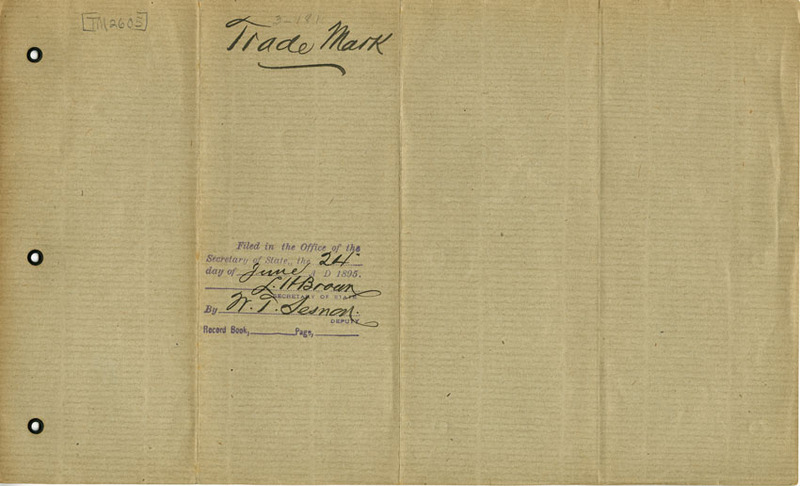 TM2605
3-181
Trade Mark
Filed in the Office of the
Secretary of State, the 24
day of June A D 1895.
L. H. Brown
SECRETARY OF STATE
By W. T. Sesnon.
DEPUTY
Record Book, Page,